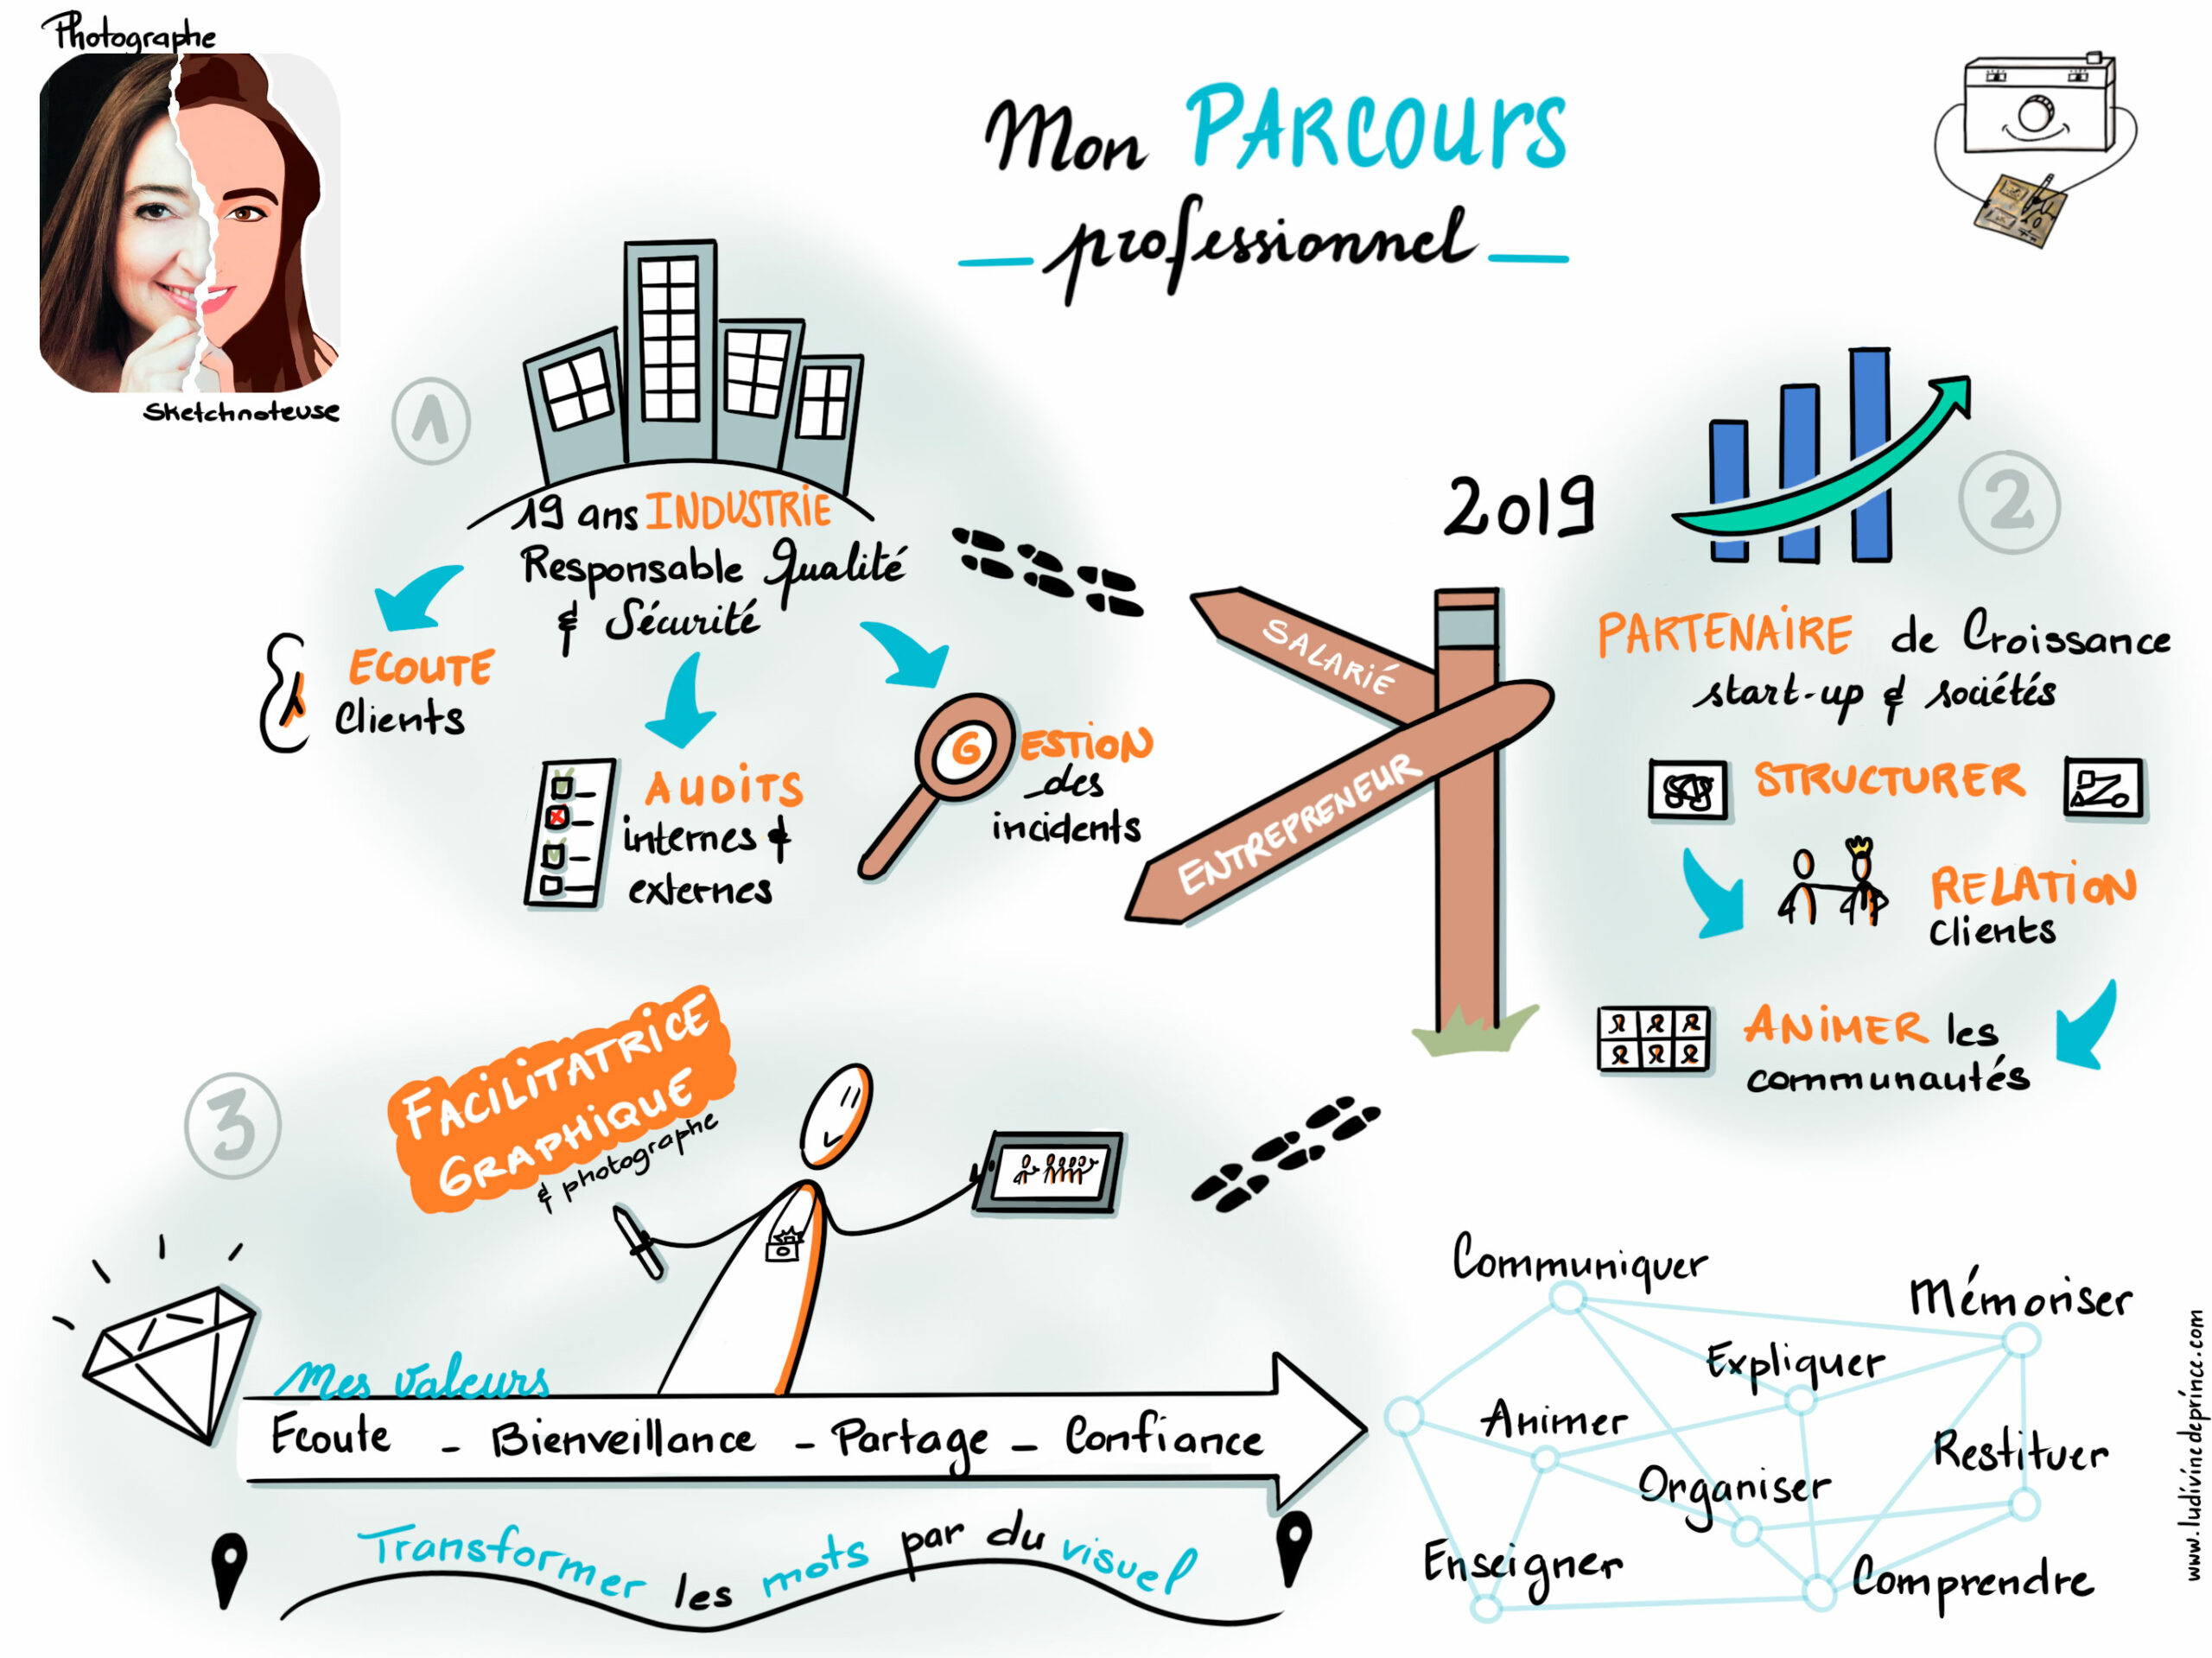 Photographe
Sketchnoteuse
Mon PARCOURS
professionnel
1
19 ans INDUSTRIE
Responsable Qualité
& Sécurité
ECOUTE
Clients
AUDITS
internes &
externes
GESTION
des
incidents
SALARIÉ
ENTREPRENEUR
2019
2
PARTENAIRE de Croissance
start-up & sociétés
STRUCTURER
RELATION
Clients
ANIMER les
communautés
3
FACILITATRICE
GRAPHIQUE
& photographe
Mes valeurs
Ecoute - Bienveillance - Partage - Confiance
Transformer les mots par du visuel
Communiquer
Mémoriser
Expliquer
Animer
Restituer
Organiser
Enseigner
Comprendre
www.ludivinedeprince.com